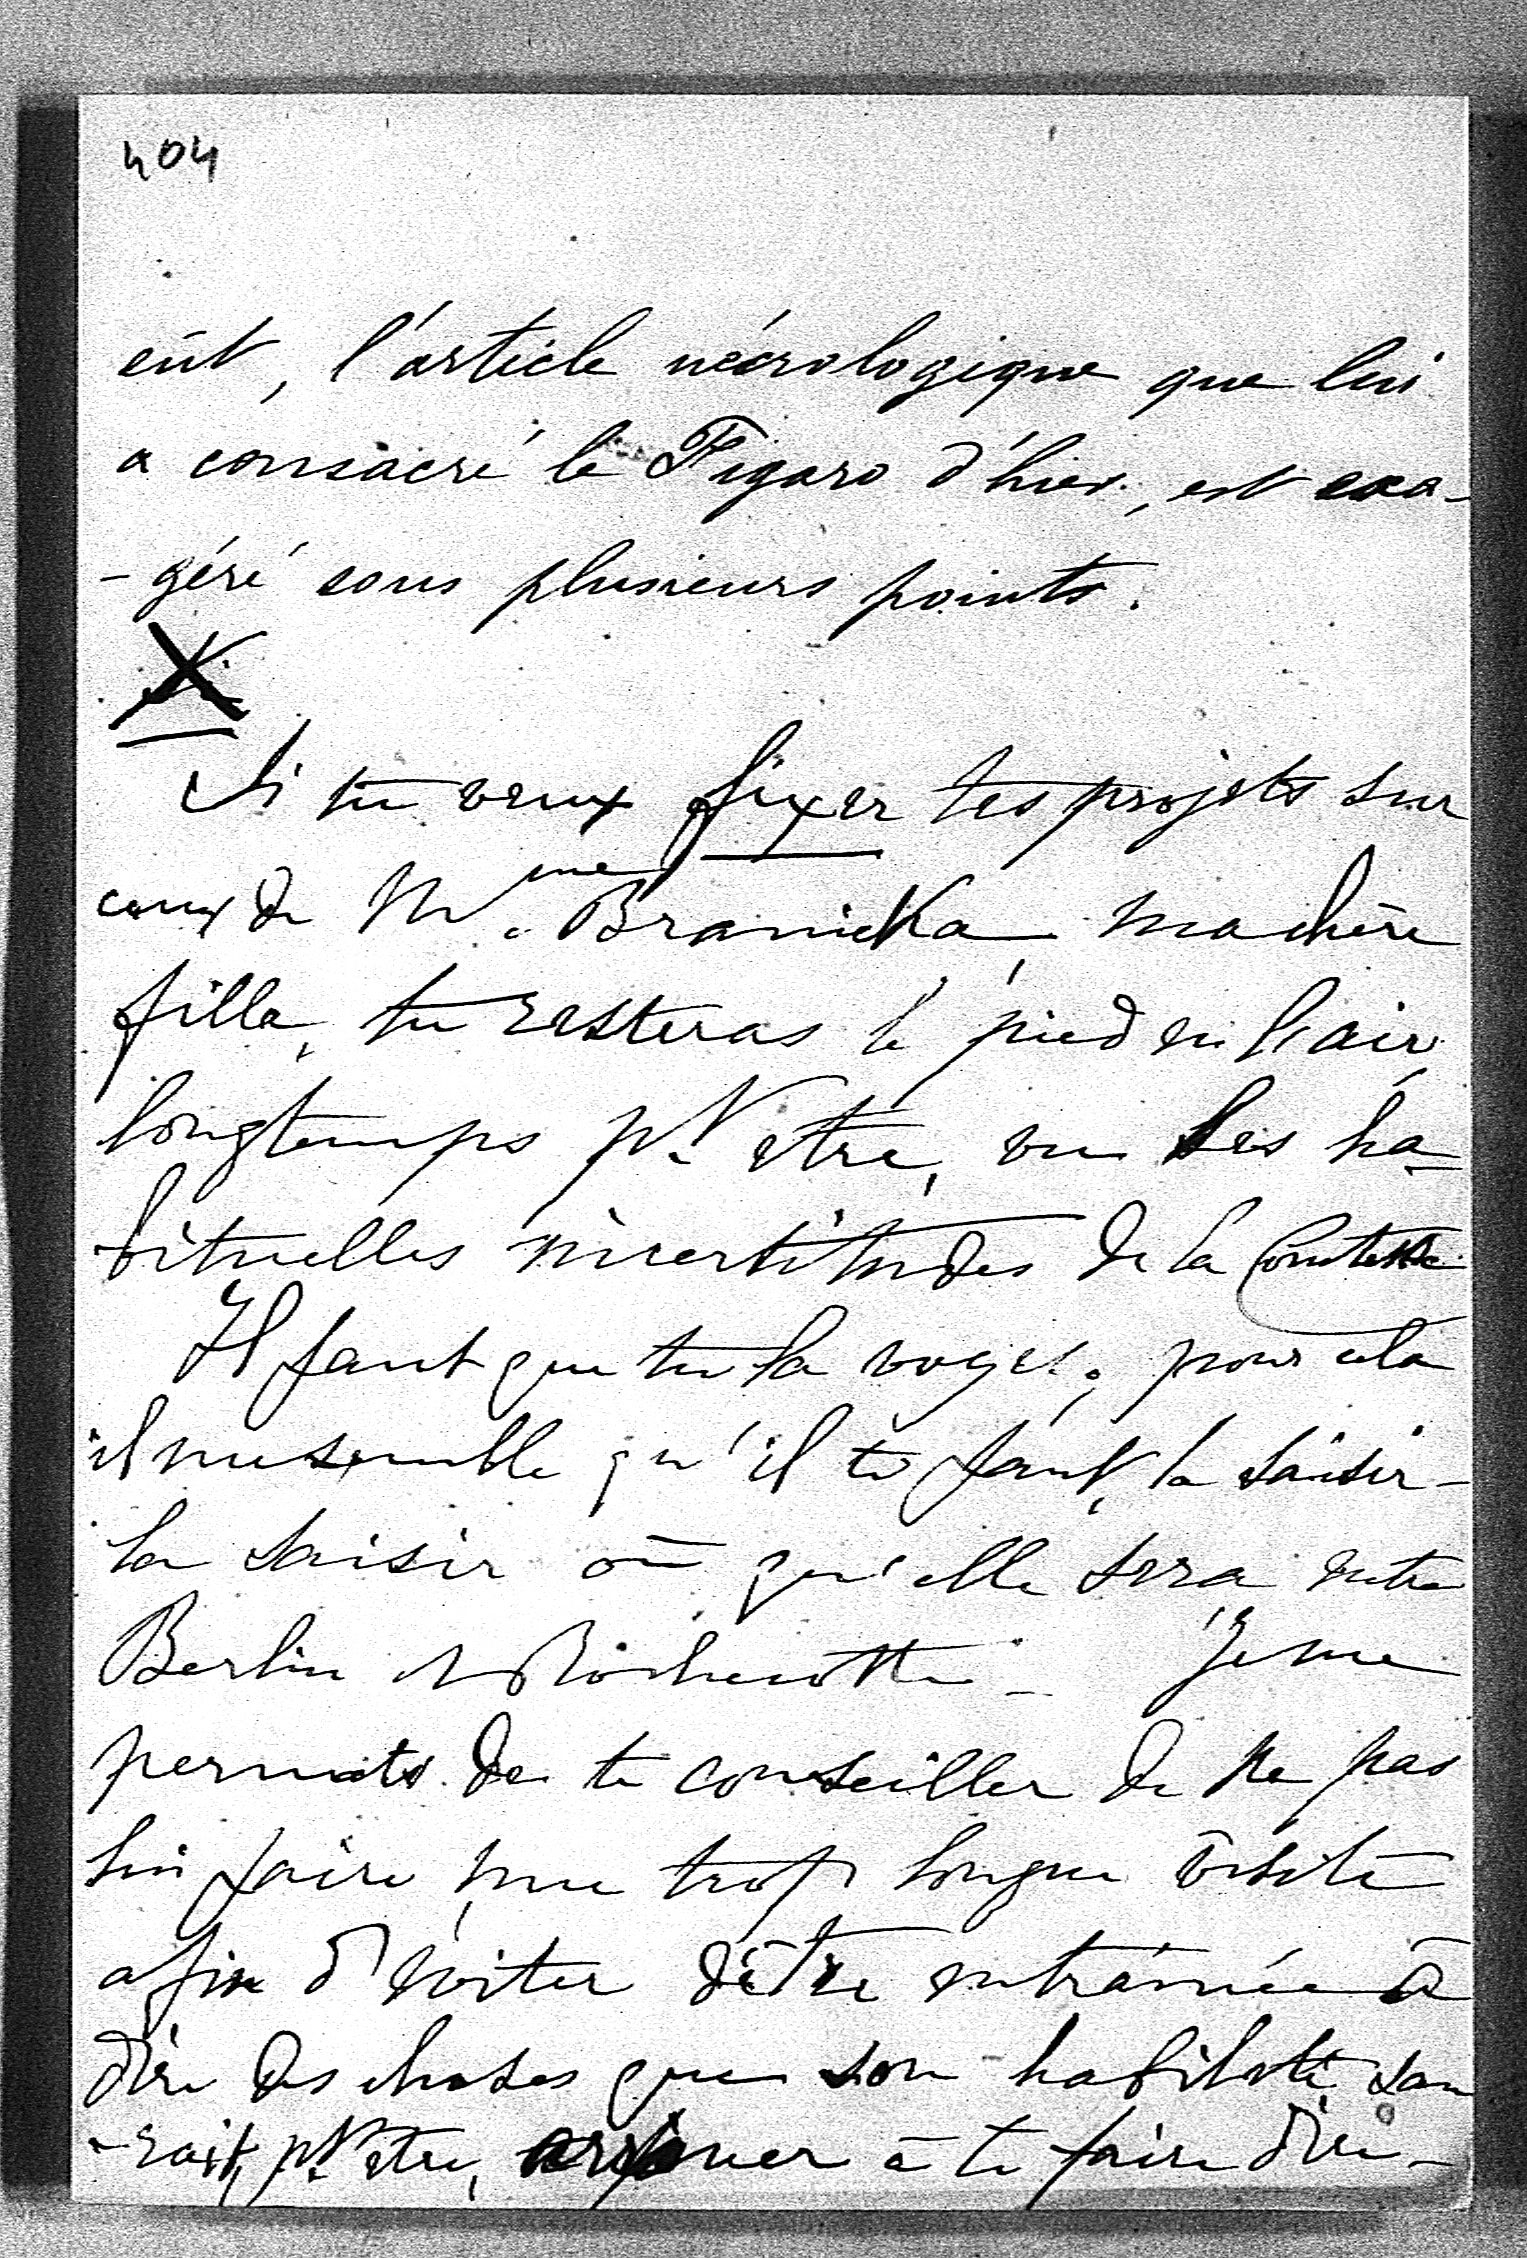 404
eût, l'article nécrologique que lui
a consacré le Figaro d'hier, est exa-
-géré sous plusieurs points.
Si tu veux fixer tes projets sur
ceux de Mme Branicka, ma chère
fille, tu resteras le pied en l'air
longtemps pt être, vu les ha-
bituelles incertitudes de la Comtesse.
Il faut que tu la voyes; pour cela
il me semble qu'il te faut, la saisir -
la saisir où qu'elle sera entre
Berlin et Rochecotte - Je me
permets de te conseiller de ne pas
lui faire une trop longue visite
afin d'éviter d'être entraînée à
dire des choses que son habileté sau
-rait, pt être, arriver à te faire dire -